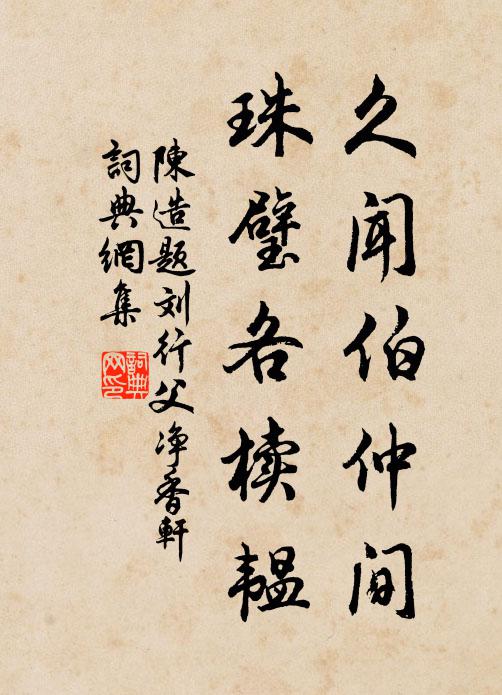 久闻伯仲间
珠璧各椟韫
陳造题刘行父净香軒
詞典網集
詞典网印